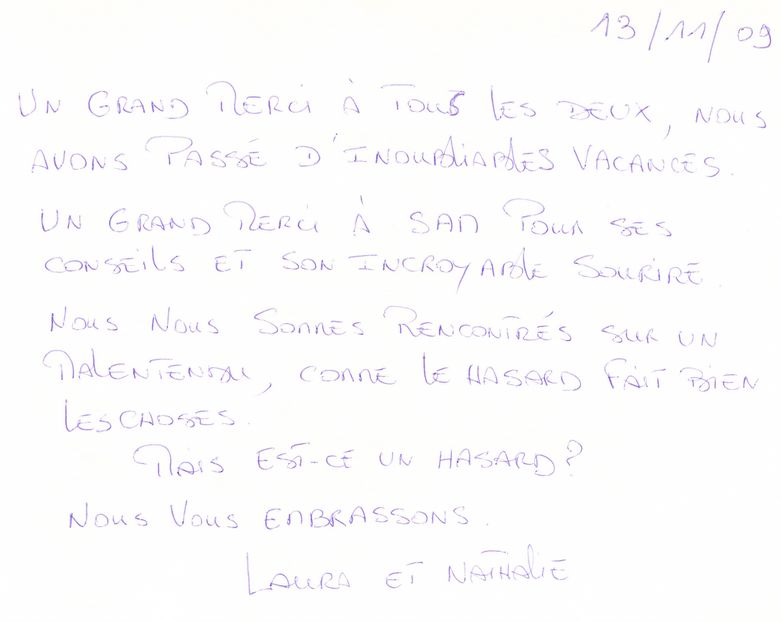 13/11/09
UN GRAND MERCI À TOUS LES DEUX, NOUS
AVONS PASSÉ D'INOUBLIABLES VACANCES.
UN GRAND MERCI À SAM POUR SES
CONSEILS ET SON INCROYABLE SOURIRE.
NOUS NOUS SOMMES RENCONTRÉS SUR UN
MALENTENDU, COMME LE HASARD FAIT BIEN
LES CHOSES.
MAIS EST-CE UN HASARD?
NOUS VOUS EMBRASSONS.
LAURA ET NATHALIE